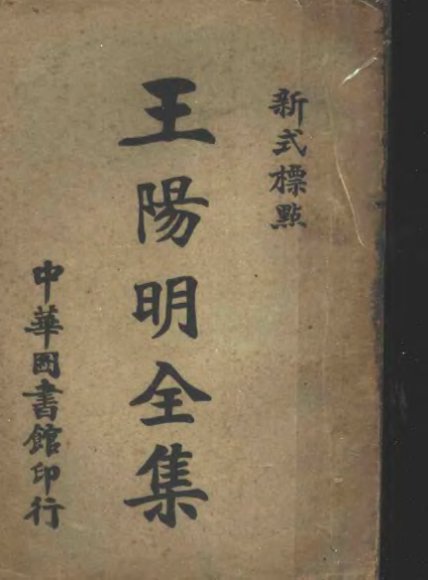 新式標點
王陽明全集
中華圖書館印行